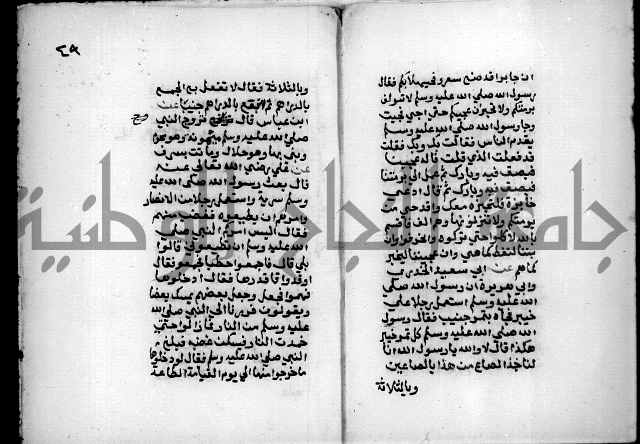 ان جابرا قد صنع سورا فحيهلا بكم فقال
رسول الله صلى الله عليه وسلم لا تنزلن
برمتكم ولا تخبزن عجينكم حتى اجي فجيت
وجا رسول الله صلى الله عليه وسلم
يقدم الناس فقالت بك وبك فقلت
قد فعلت الذي قلت فاخرجت له عجينا
فبصق فيه وبارك ثم عمد الى برمتنا
فبصق فيه وبارك ثم قال ادعي
خابزة فلتخبز معك واقدحي من
برمتكم ولا تنزلوها وهم الف فاقسم
بالله لاكلوا حتى تركوه وانحرفوا وان
برمتنا لتغط كما هي وان عجيننا ليخبز
كما هو عن ابي سعيد الخدري
وابي هريرة ان رسول الله صلى
الله عليه وسلم استعمل رجلا على
خيبر فجاه بتمر جنيب فقال رسول
الله صلى الله عليه وسلم كل تمر خيبر
هكذا قال لا والله يا رسول الله انا
لناخذ الصاع من هذا بالصاعين
وبالثلاثة
٤٩
وبالثلاثة فقال لا تفعل بع الجمع
بالدراهم ثم ابتع بالدراهم جنيبا عن
ابن عباس قال تزوج النبي
صلى الله عليه وسلم ميمونة وهو محرم
وبنى بها وهو حلال وماتت بسرف
عن علي رضي الله تعالى عنه
قال بعث رسول الله صلى الله عليه
وسلم سرية واستعمل رجلا من الانصار
وامرهم ان يطيعوه فغضب منهم
فقال اليس امركم النبي صلى
الله عليه وسلم ان تطيعوني قالوا
بلى قال فاجمعوا حطبا فجمعوا فقال
اوقدوا نارا فاوقدوها فقال ادخلوها
فهموا وجعل بعضهم يمسك بعضا
ويقولون فررنا الى النبي صلى الله
عليه وسلم من النار فما زالوا حتى
خمدت النار فسكن غضبه فبلغ
النبي صلى الله عليه وسلم فقال لو دخلوها
ما خرجوا منها الى يوم القيامة الطاعة
جامعة النجاح الوطنية